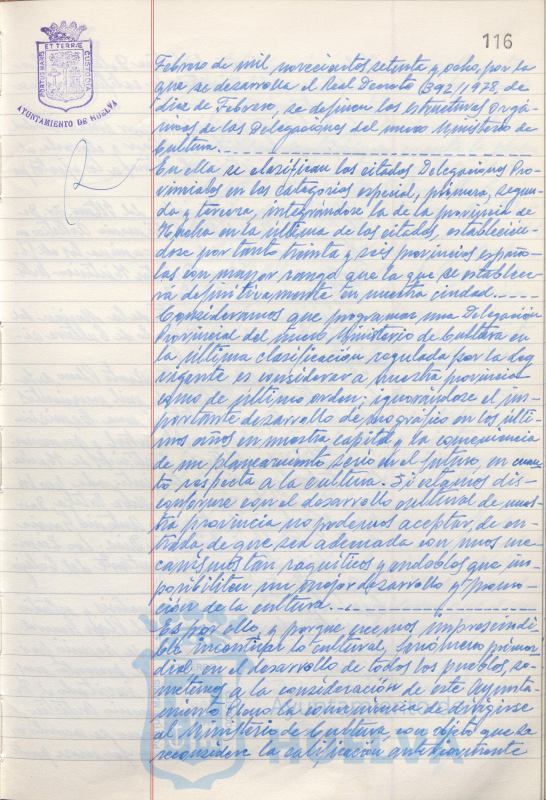 116
PORTUS MARIS ET TERRÆ CUSTODIA
AYUNTAMIENTO DE HUELVA
Febrero de mil novecientos setenta y ocho, por la
que se desarrolla el Real Decreto 1392/1978, de
diez de Febrero, se definen las estructuras orgá-
nicas de las Delegaciones del nuevo Ministerio de
Cultura.
En ella se clasifican las citadas Delegaciones Pro-
vinciales en las categorías especial, primera, segun-
da y tercera, integrándose la de la provincia de
Huelva en la última de las citadas, establecién-
dose por tanto treinta y seis provincias españo-
las con mayor rango que la que se establece-
rá definitivamente en nuestra ciudad.
Consideramos que programar una Delegación
Provincial del nuevo Ministerio de Cultura en
la última clasificación regulada por la ley
vigente es considerar a nuestra provincia
como de último orden; ignorándose el im-
portante desarrollo demográfico en los últi-
mos años en nuestra capital y la conveniencia
de un planeamiento serio en el futuro, en cuan-
to respecta a la cultura. Si estamos dis-
conforme con el desarrollo cultural de nues-
tra provincia no podemos aceptar, de en-
trada de que sea ademada con unos me-
canismos tan raquíticos y endobles que im-
posibiliten un mejor desarrollo y promo-
ción de la cultura.
Es por ello, y porque creemos imprescindi-
ble incentivar lo cultural, fenómeno primor-
dial en el desarrollo de todos los pueblos, so-
metemos a la consideración de este Ayunta-
miento Pleno la conveniencia de dirigirse
al Ministerio de Cultura, con objeto que se
reconsidere la calificación anteriormente
HUELVA